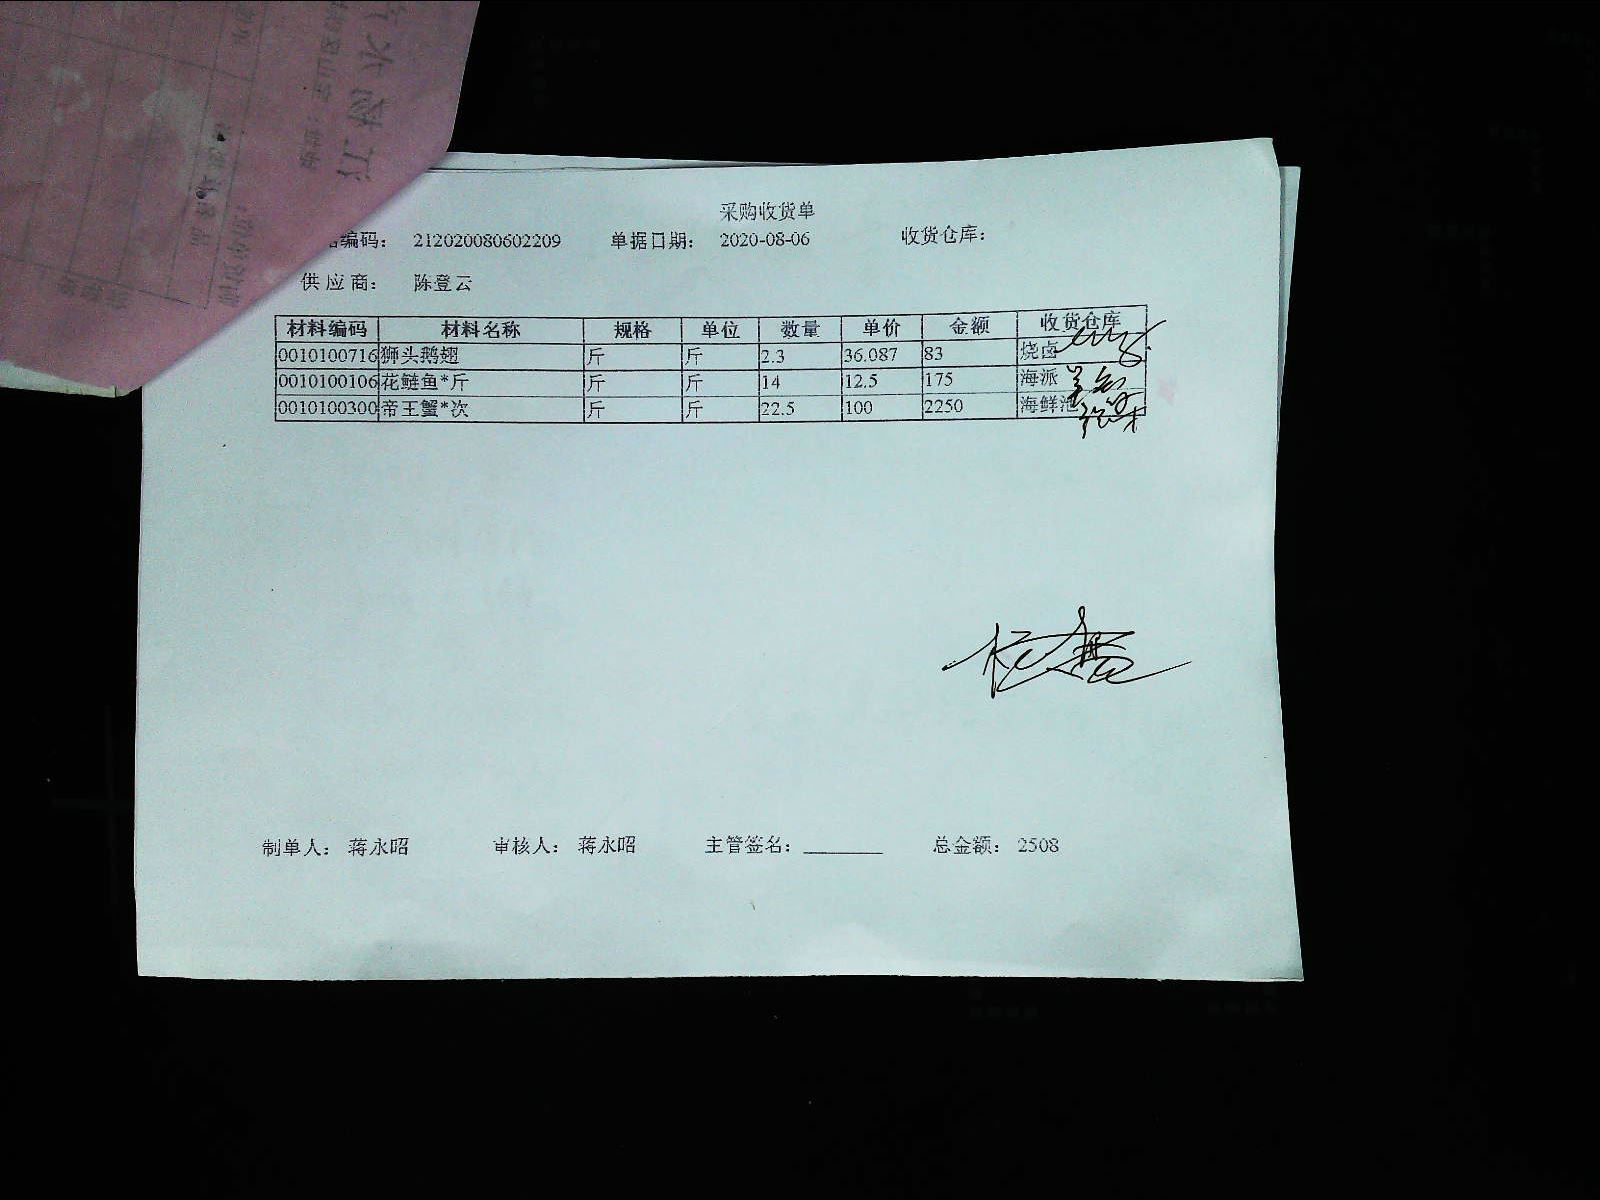 采购收货单
编码： 212020080602209 单据日期： 2020-08-06 收货仓库：
供应商： 陈登云
材料编码 材料名称 规格 单位 数量 单价 金额 收货仓库
0010100716 狮头鹅翅 斤 斤 2.3 36.087 83 烧卤
0010100106 花鲢鱼*斤 斤 斤 14 12.5 175 海派
0010100300 帝王蟹*次 斤 斤 22.5 100 2250 海鲜池
制单人： 蒋永昭 审核人： 蒋永昭 主管签名： 总金额： 2508